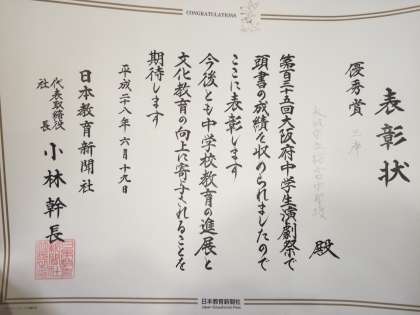 CONGRATULATIONS
表彰状
優秀賞
殿
第百三十五回大阪府中学生演劇祭で
頭書の成績を収められましたので
ここに表彰します
今後とも中学校教育の進展と
文化教育の向上に寄与されることを
期待します
平成二十八年六月十九日
日本教育新聞社
代表取締役
社長 小林幹長
日本教育新聞社